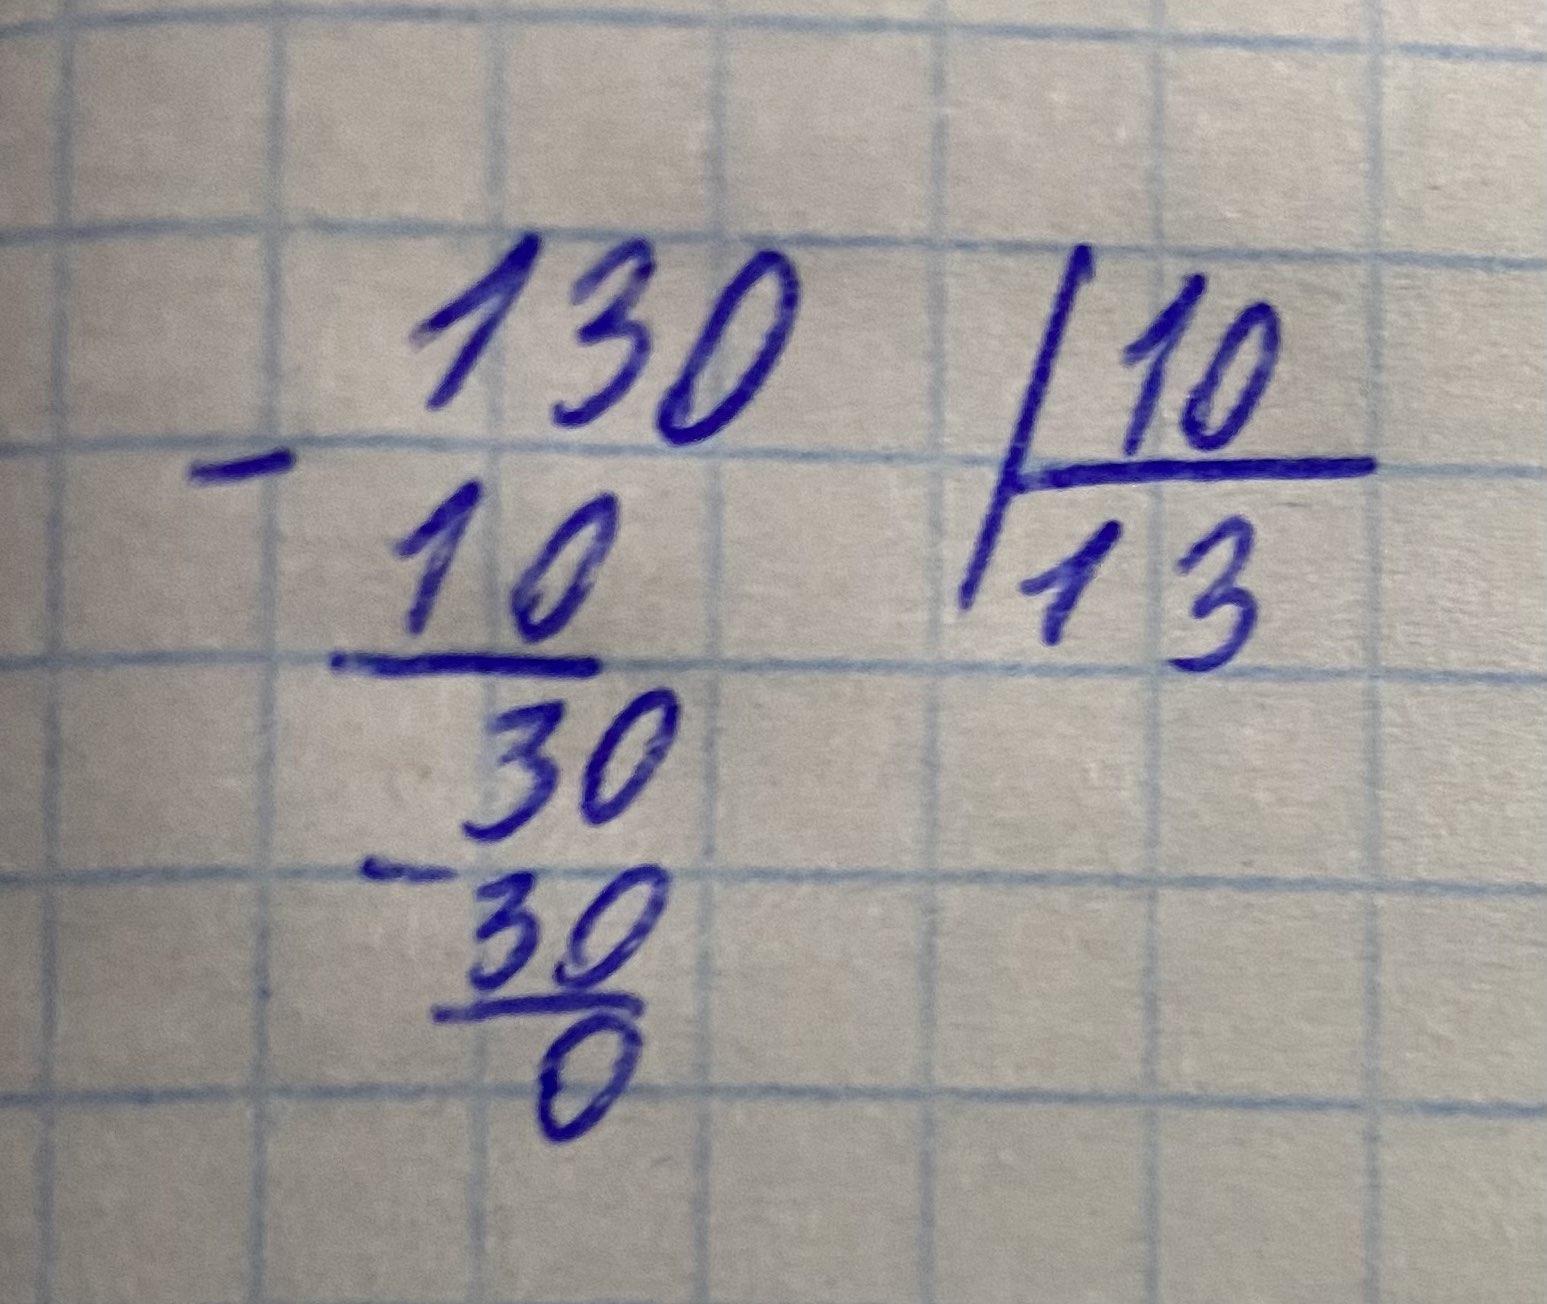 130 | 10
- 10 13
30
- 30
0